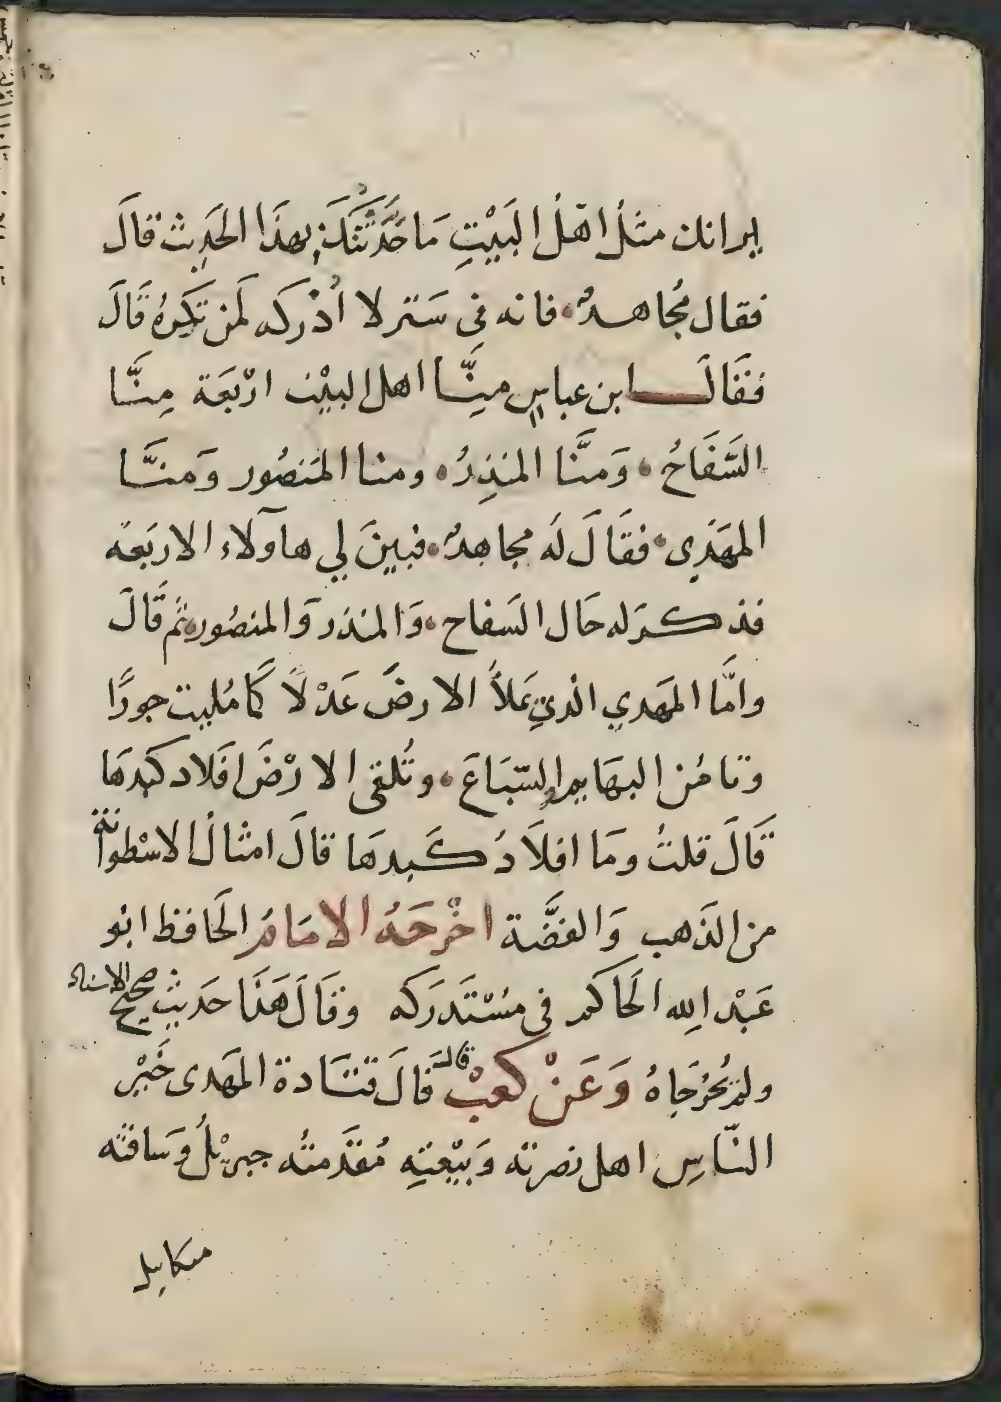 ير انك مثل اهل البَيْتِ مَا حَدَّثْتُكَ بهذَا الحَدِيث قالَ
فقال مُجاهدٌ فانه في سَتر لا أذْركه لمَن تَكرهُ قَالَ
فقَالَ ابن عباسٍ مِنَّا اهل البيْت ارْبعَة مِنَّا
السَّفَاحُ وَمنَّا المنذِرُ ومنا المَنصُور وَمنَّا
المهَدِى فقَالَ لَه مجاهدٌ فبينَ لي هآولاء الاربَعة
فذكرَ له حَال السَفاح وَالمنذر وَالمنصُور ثم قَالَ
وامَّا المهَدي الذي يملأ الارضَ عَدْلًا كما مُليت جورًا
وتامُن البهَايم والسّبَاعَ وتُلقى الارْضَ افلاد كبدهَا
قَالَ قلتُ ومَا افلاَدُ كَبدهَا قالَ امثالُ الاسْطوانة
من الذَهب وَالفضَّة اخْرجَهُ الامَامُ الحَافظ ابو
عَبْد الله الحَاكم في مُسْتَدركه وقَالَ هَذَا حَديث صحيح الاسناد
ولم يُخرجَاهُ وَعَنْ كعبْ قال قَالَ قتَادة المهَدى خَيْر
النّاسِ اهل نصرته وَبيْعتِهِ مُقدَّمتُه جبريْلُ وَساقتُه
ميكاييل